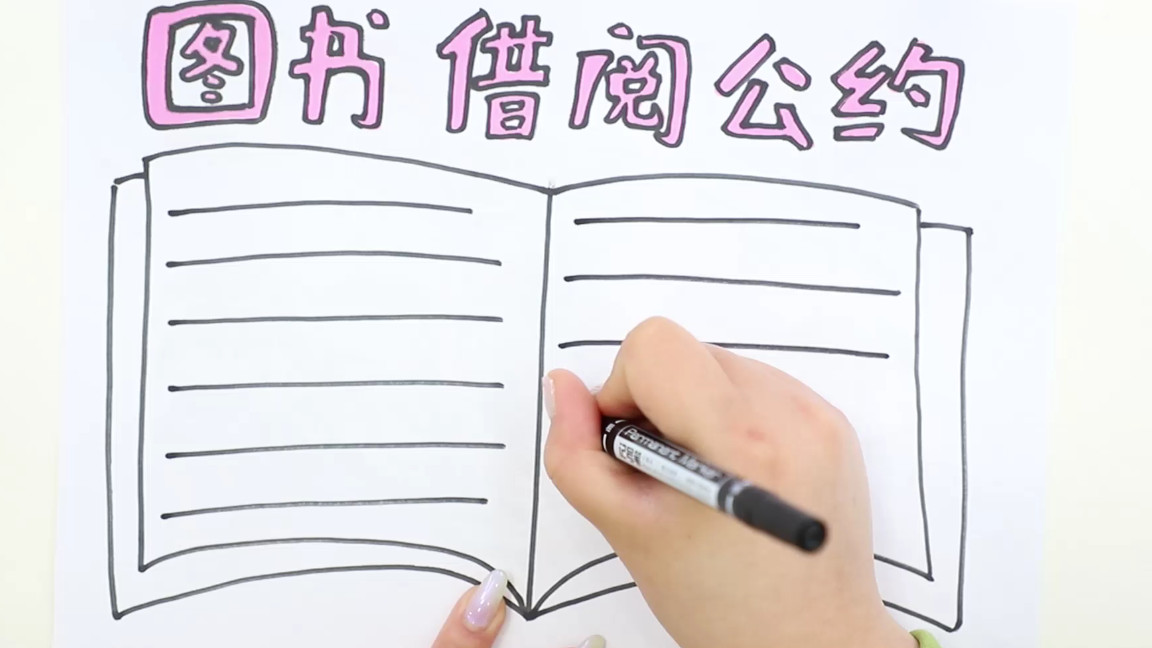 图书借阅公约
Permanent Marker